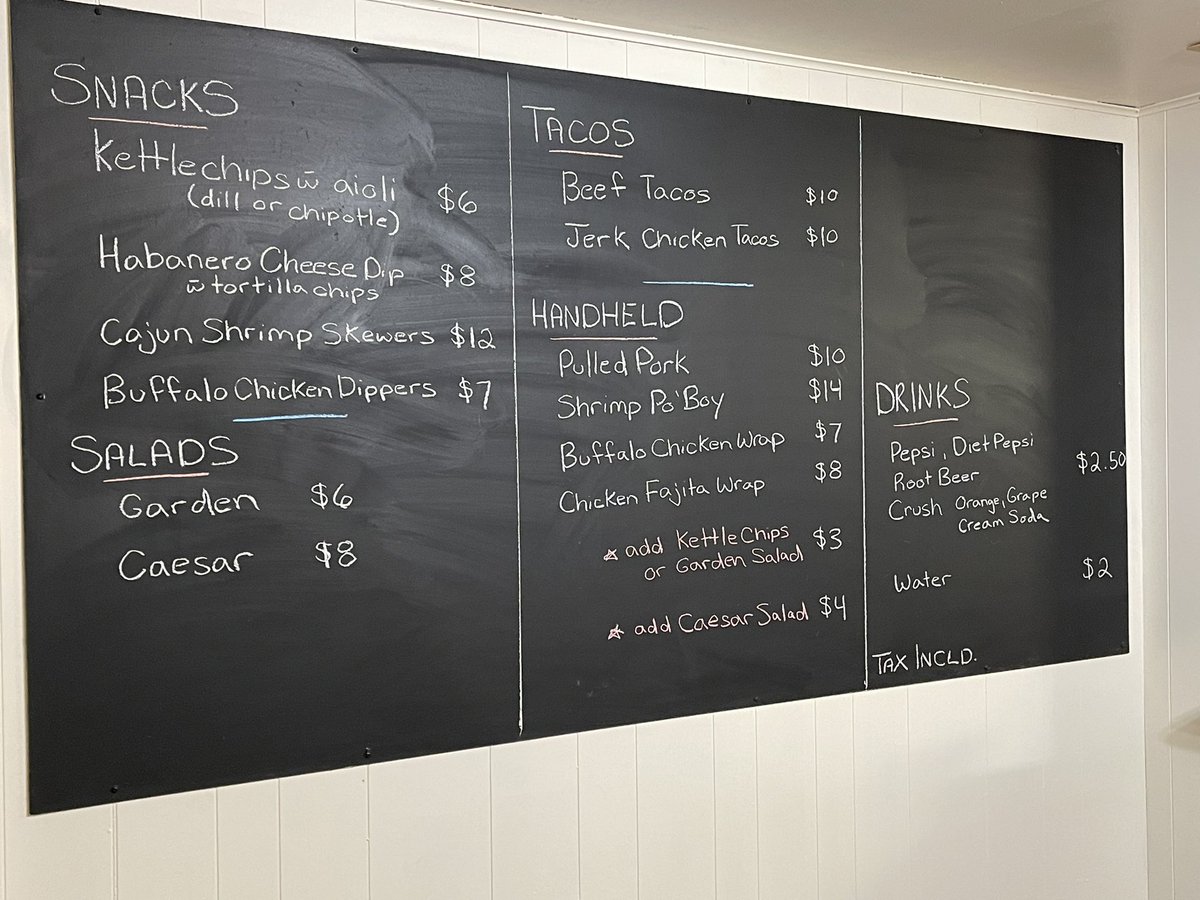 SNACKS
Kettlechips w̄ aioli $6
(dill or chipotle)
Habanero Cheese Dip $8
w̄ tortilla chips
Cajun Shrimp Skewers $12
Buffalo Chicken Dippers $7
SALADS
Garden $6
Caesar $8
TACOS
Beef Tacos $10
Jerk Chicken Tacos $10
HANDHELD
Pulled Pork $10
Shrimp Po'Boy $14
Buffalo Chicken Wrap $7
Chicken Fajita Wrap $8
☆ add Kettle Chips $3
or Garden Salad
☆ add Caesar Salad $4
DRINKS
Pepsi, Diet Pepsi
Root Beer $2.50
Crush Orange, Grape
Cream Soda
Water $2
TAX INCLD.